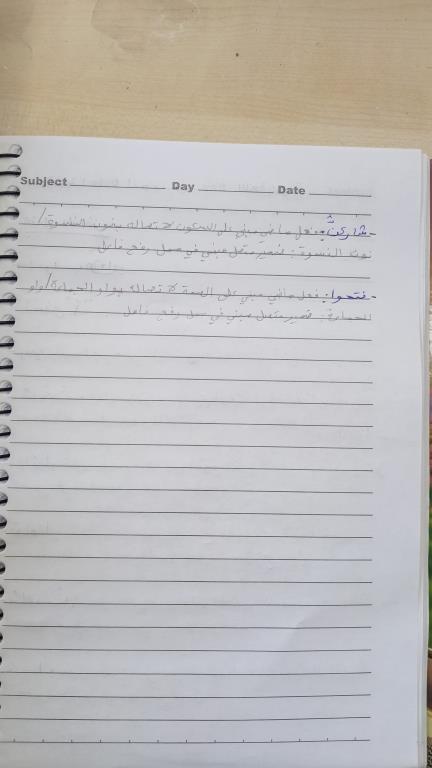 Subject Day Date
- شاركنَ: فعل ماضي مبني على السكون لاتصاله بنون النسوة /
نون النسوة: ضمير متصل مبني في محل رفع فاعل
- فتحوا: فعل ماضي مبني على الضمة لاتصاله بواو الجماعة / واو
الجماعة: ضمير متصل مبني في محل رفع فاعل